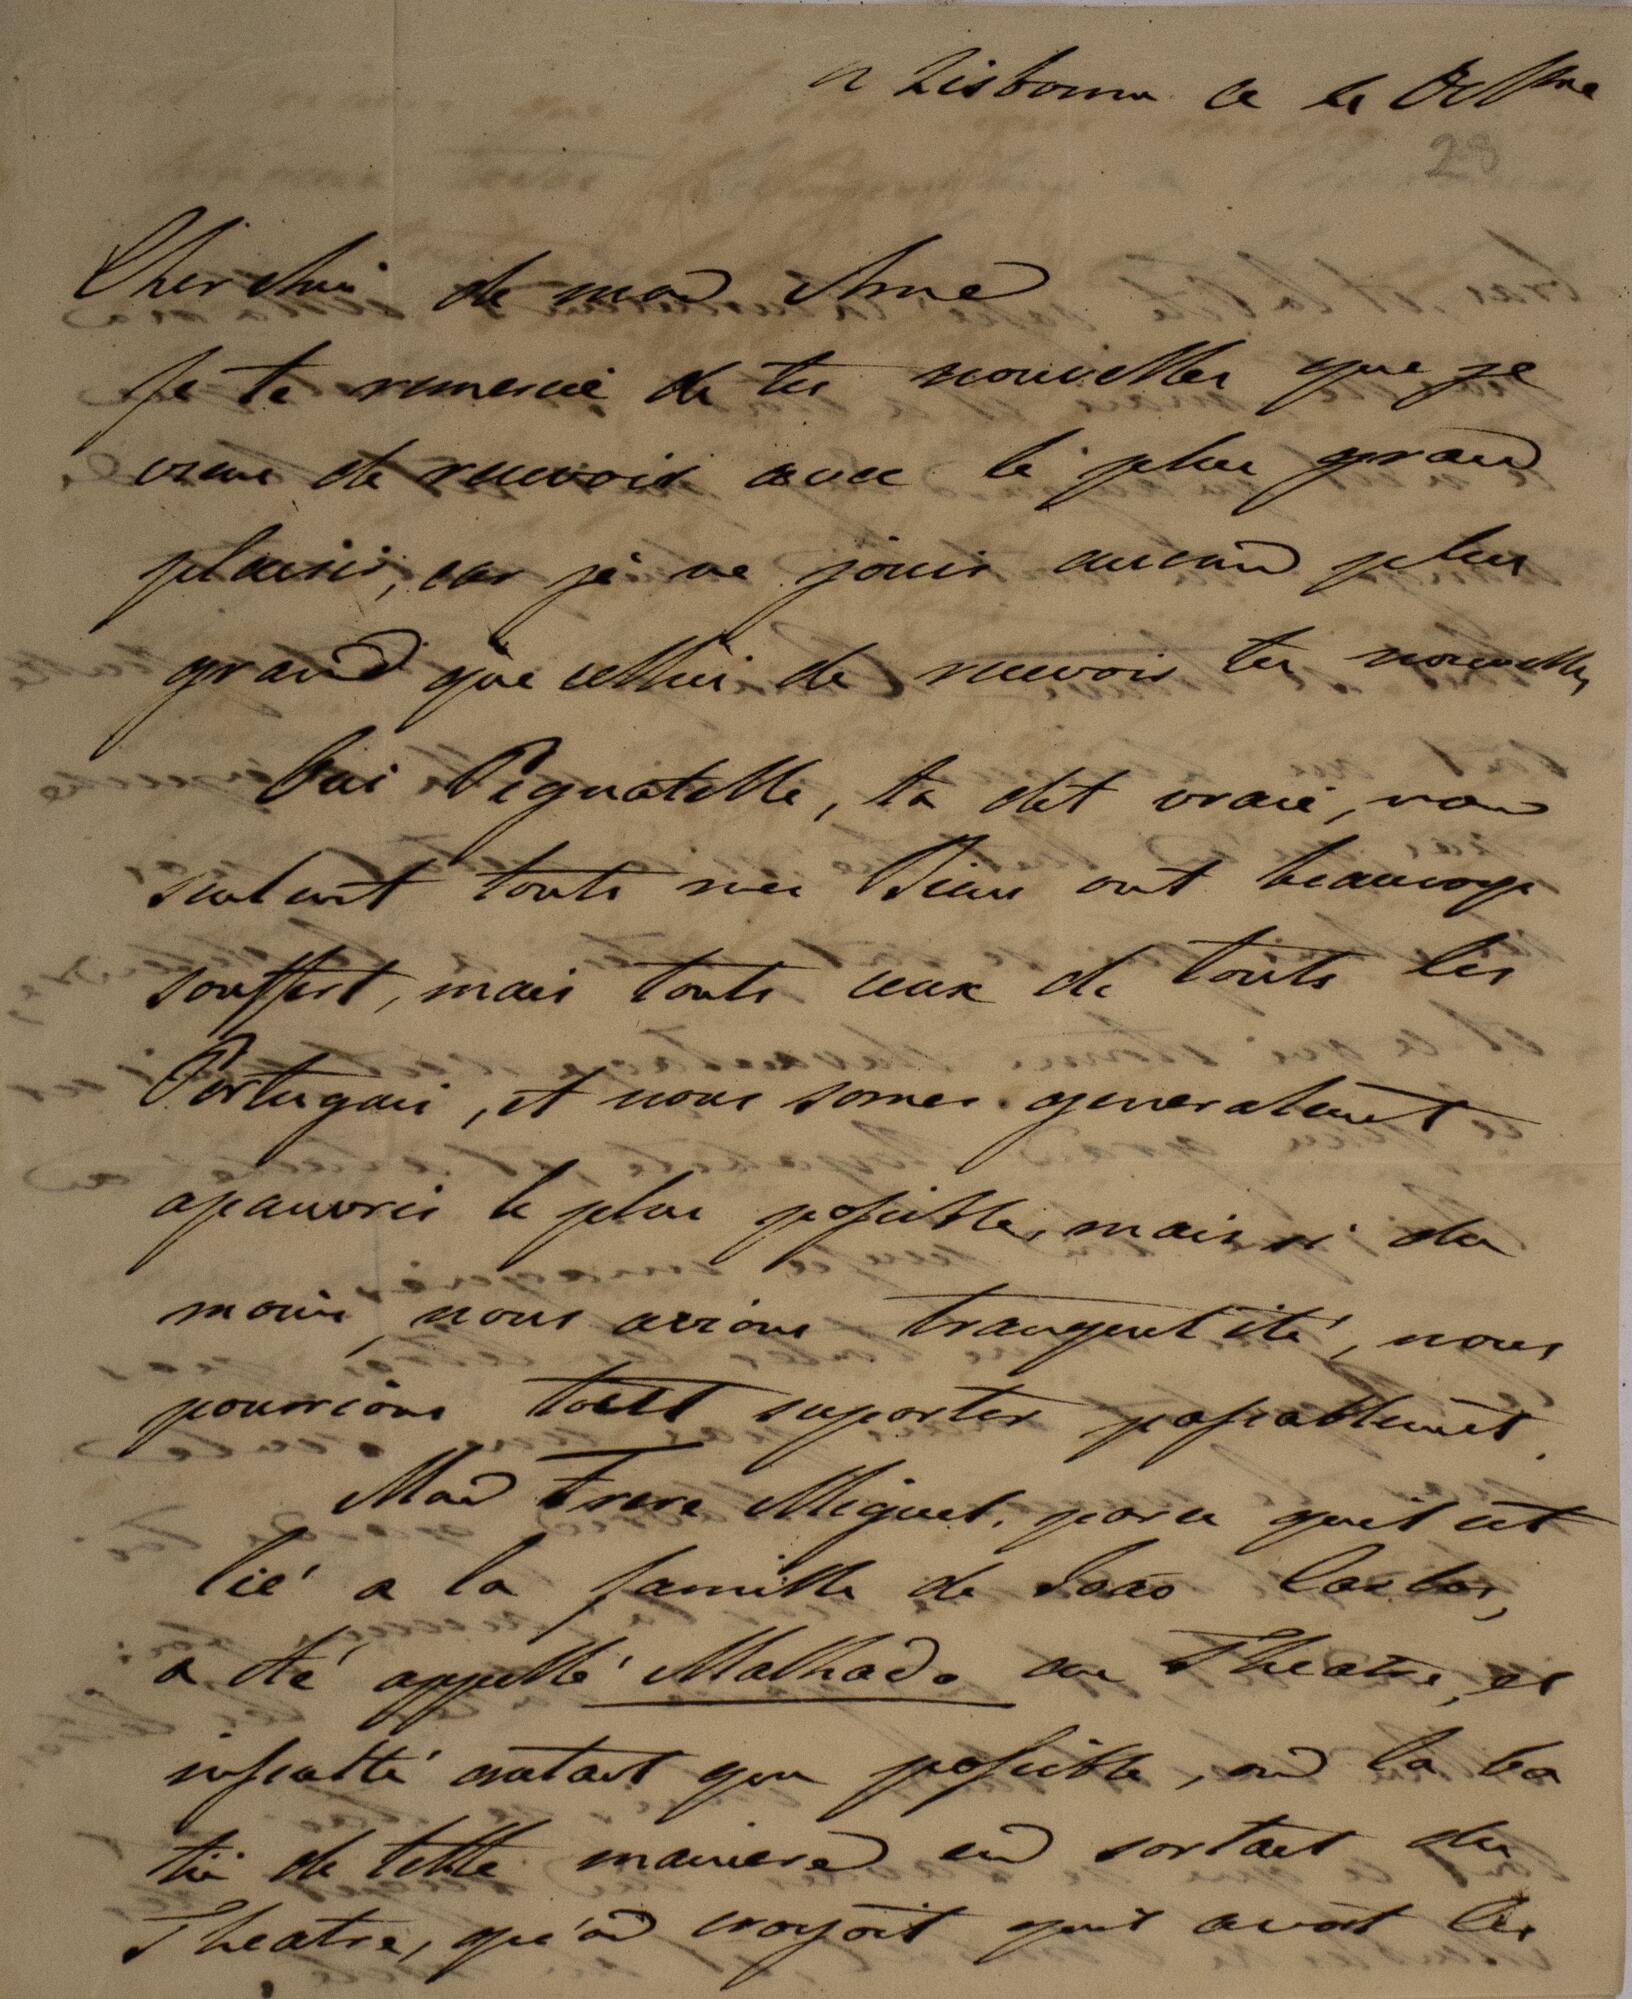 a Lisbonne ce le 8bre
28
Cherchii de mon Ame
Je te remercie de tes nouvelles que je
viens de recevoir avec le plus grand
plaisir, car je ne jouis aucun plus
grand que cellui de recevoir tes nouvelles,
Oui Pignatelle, tu dit vraie, non
seulent touts mes Biens ont beaucoup
souffert, mais touts ceux de touts les
Portugais, et nous somes generalement
apauvris le plus possible, mais si du
moins, nous avions tranquilité, nous
pourrions tout suporter passablement.
Mon Frere Miguel, parce quil est
lié a la famille de João Carlos,
a été appellé Malhado au Theatre, et
insulté autant que possible, on la ba
tu de telle maniere en sortant du
Theatre, qu'on croyoit quil avoit les